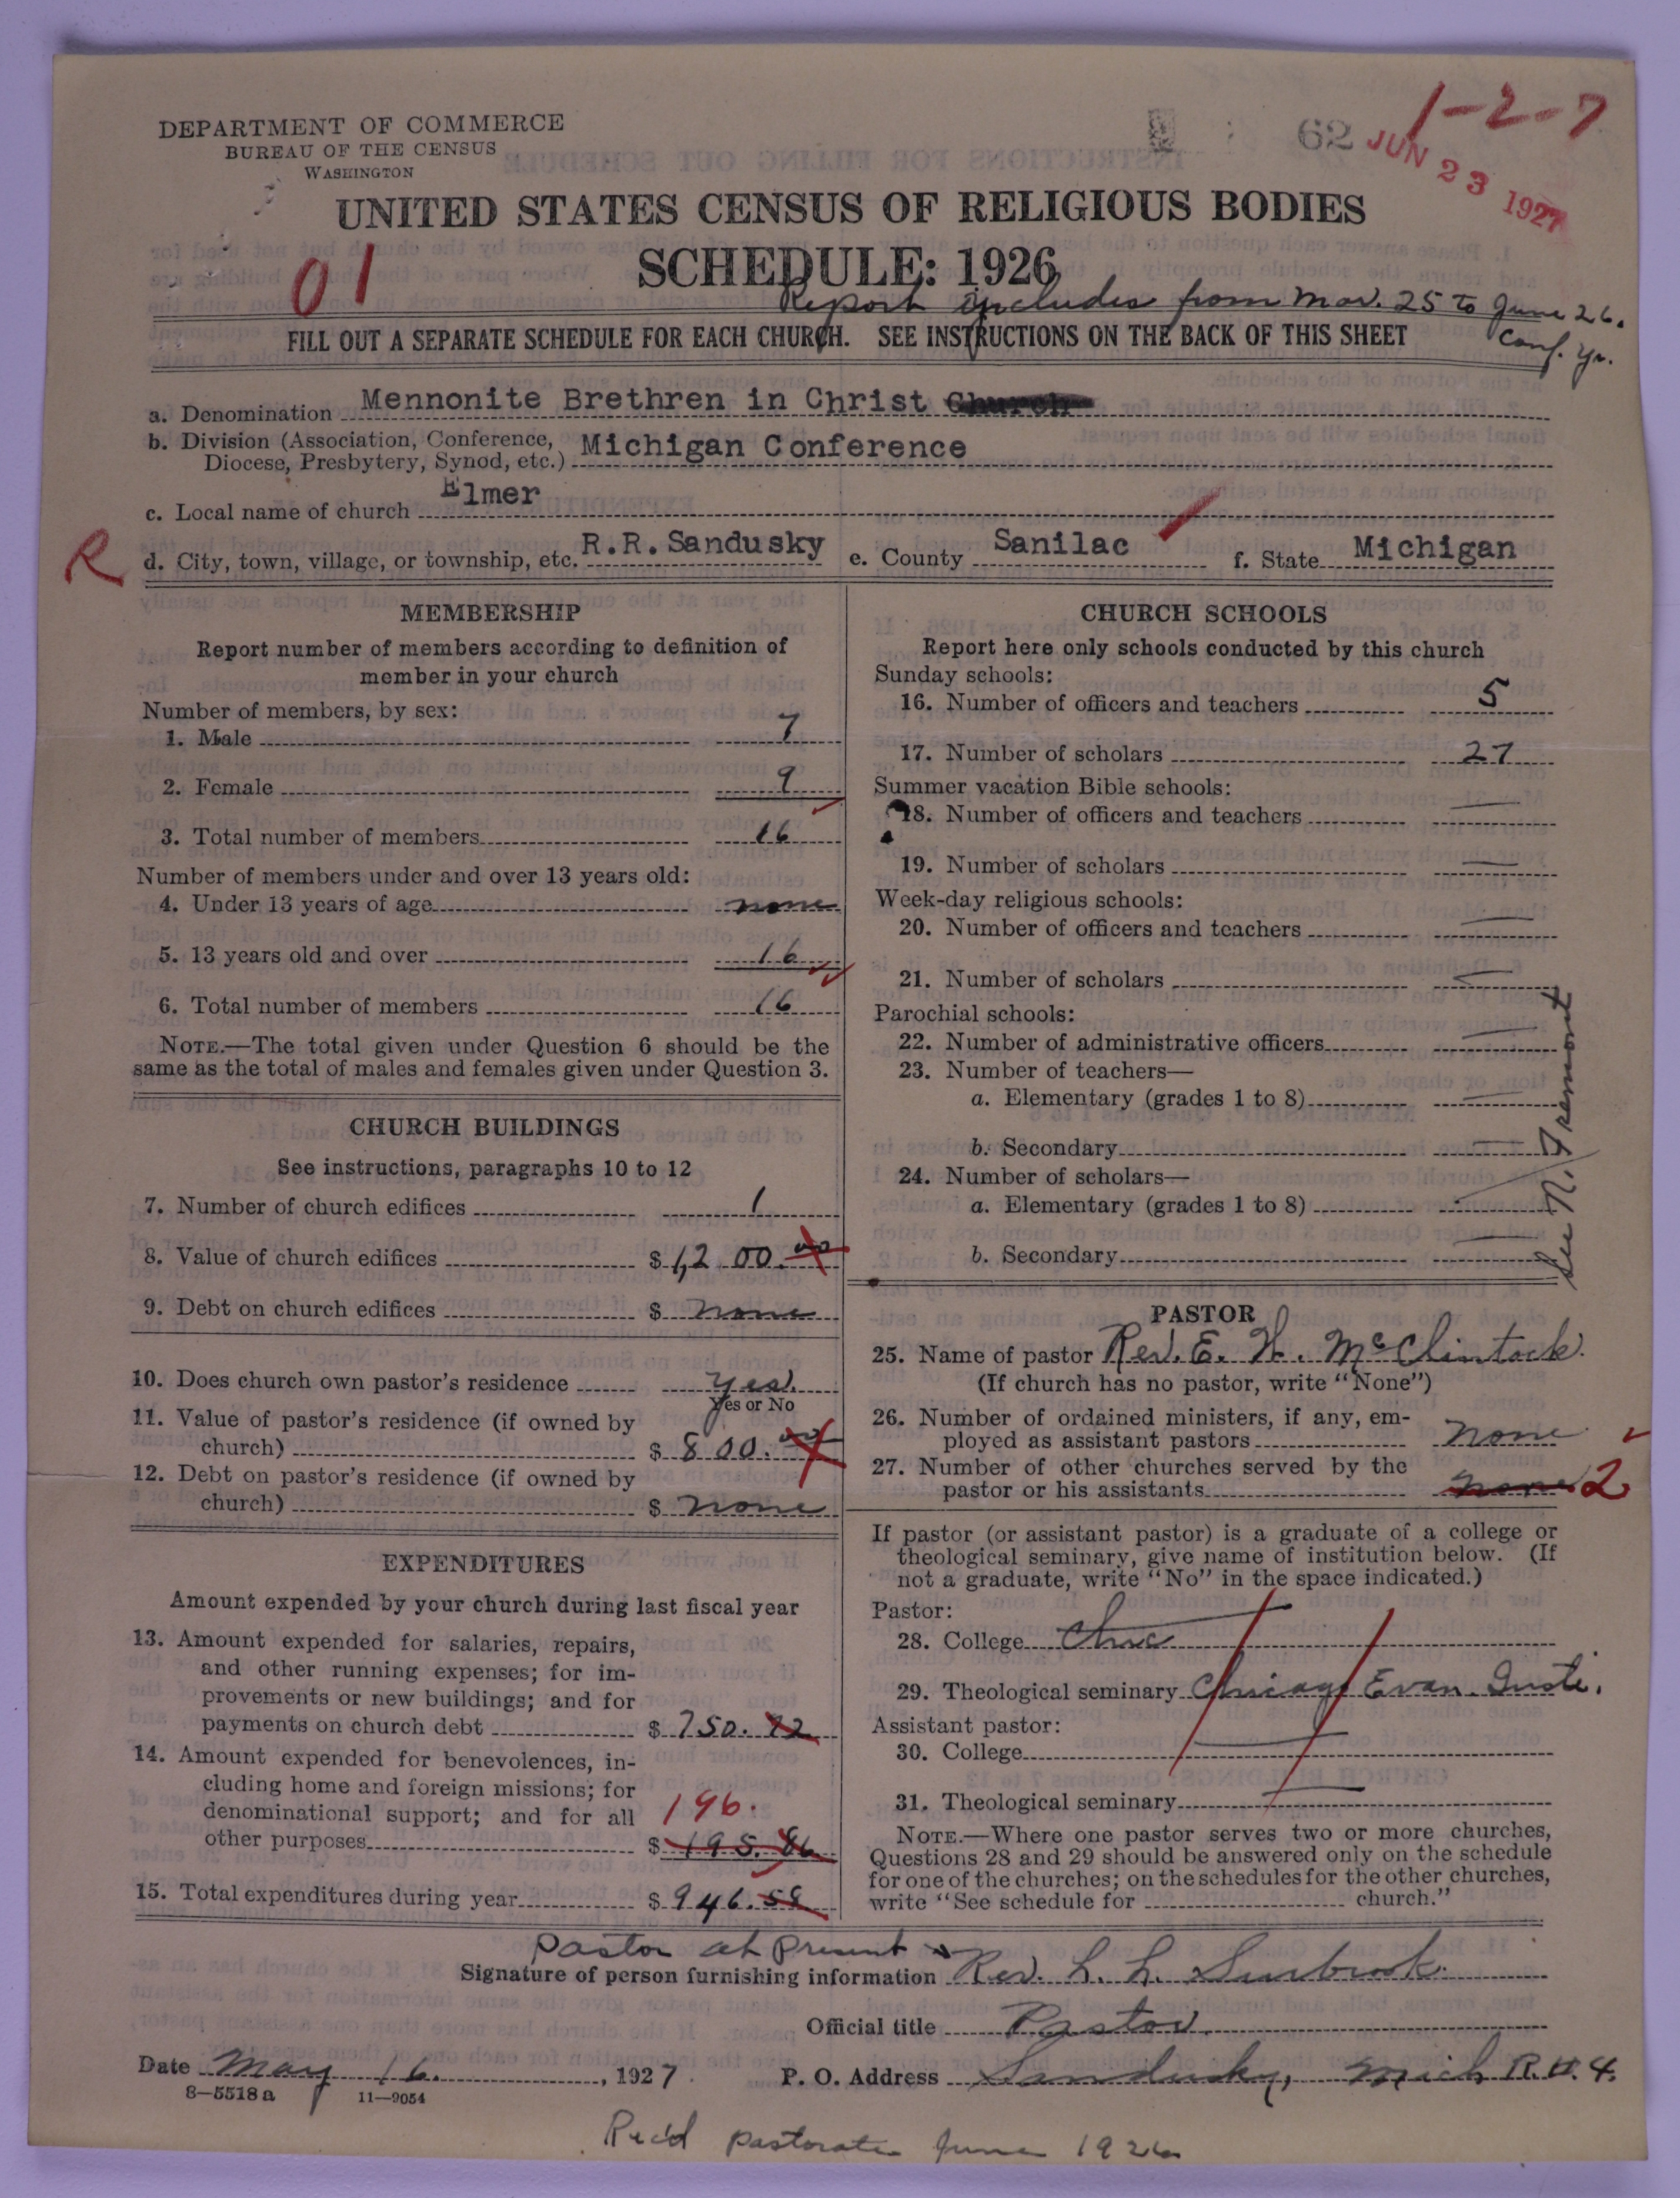 1-2-7
62
JUN 23 1927
DEPARTMENT OF COMMERCE
BUREAU OF THE CENSUS
WASHINGTON
UNITED STATES CENSUS OF RELIGIOUS BODIES
SCHEDULE: 1926
01
Report includes from Mar. 25 to June 26.
Conf. yr.
FILL OUT A SEPARATE SCHEDULE FOR EACH CHURCH. SEE INSTRUCTIONS ON THE BACK OF THIS SHEET
a. Denomination Mennonite Brethren in Christ Church
b. Division (Association, Conference, Diocese, Presbytery, Synod, etc.) Michigan Conference
c. Local name of church Elmer
R
d. City, town, village, or township, etc. R.R. Sandusky e. County Sanilac f. State Michigan
MEMBERSHIP
Report number of members according to definition of
member in your church
Number of members, by sex:
1. Male 7
2. Female 9
3. Total number of members 16
Number of members under and over 13 years old:
4. Under 13 years of age none
5. 13 years old and over 16
6. Total number of members 16
NOTE.—The total given under Question 6 should be the
same as the total of males and females given under Question 3.
CHURCH BUILDINGS
See instructions, paragraphs 10 to 12
7. Number of church edifices 1
8. Value of church edifices $ 1,200.00
9. Debt on church edifices $ none
10. Does church own pastor's residence yes.
Yes or No
11. Value of pastor's residence (if owned by
church) $ 800.00
12. Debt on pastor's residence (if owned by
church) $ none
EXPENDITURES
Amount expended by your church during last fiscal year
13. Amount expended for salaries, repairs,
and other running expenses; for im-
provements or new buildings; and for
payments on church debt $ 750.72
14. Amount expended for benevolences, in-
cluding home and foreign missions; for
denominational support; and for all 196.
other purposes $ 195.86
15. Total expenditures during year $ 946.58
CHURCH SCHOOLS
Report here only schools conducted by this church
Sunday schools:
16. Number of officers and teachers 5
17. Number of scholars 27
Summer vacation Bible schools:
18. Number of officers and teachers
19. Number of scholars
Week-day religious schools:
20. Number of officers and teachers
21. Number of scholars
Parochial schools:
22. Number of administrative officers
23. Number of teachers—
a. Elementary (grades 1 to 8)
b. Secondary
24. Number of scholars—
a. Elementary (grades 1 to 8)
b. Secondary
See N. Fremont
PASTOR
25. Name of pastor Rev. E. W. McClintock.
(If church has no pastor, write "None")
26. Number of ordained ministers, if any, em-
ployed as assistant pastors none
27. Number of other churches served by the
pastor or his assistants none 2
If pastor (or assistant pastor) is a graduate of a college or
theological seminary, give name of institution below. (If
not a graduate, write "No" in the space indicated.)
Pastor:
28. College
29. Theological seminary Chicago Evan. Insti.
Assistant pastor:
30. College
31. Theological seminary
NOTE.—Where one pastor serves two or more churches,
Questions 28 and 29 should be answered only on the schedule
for one of the churches; on the schedules for the other churches,
write "See schedule for church."
Pastor at present
Signature of person furnishing information Rev. L. L. Surbrook.
Official title Pastor.
Date May 16., 1927. P. O. Address Sandusky, Mich R.#.4.
8—5518 a 11—9054
Rec'd pastorate June 1926